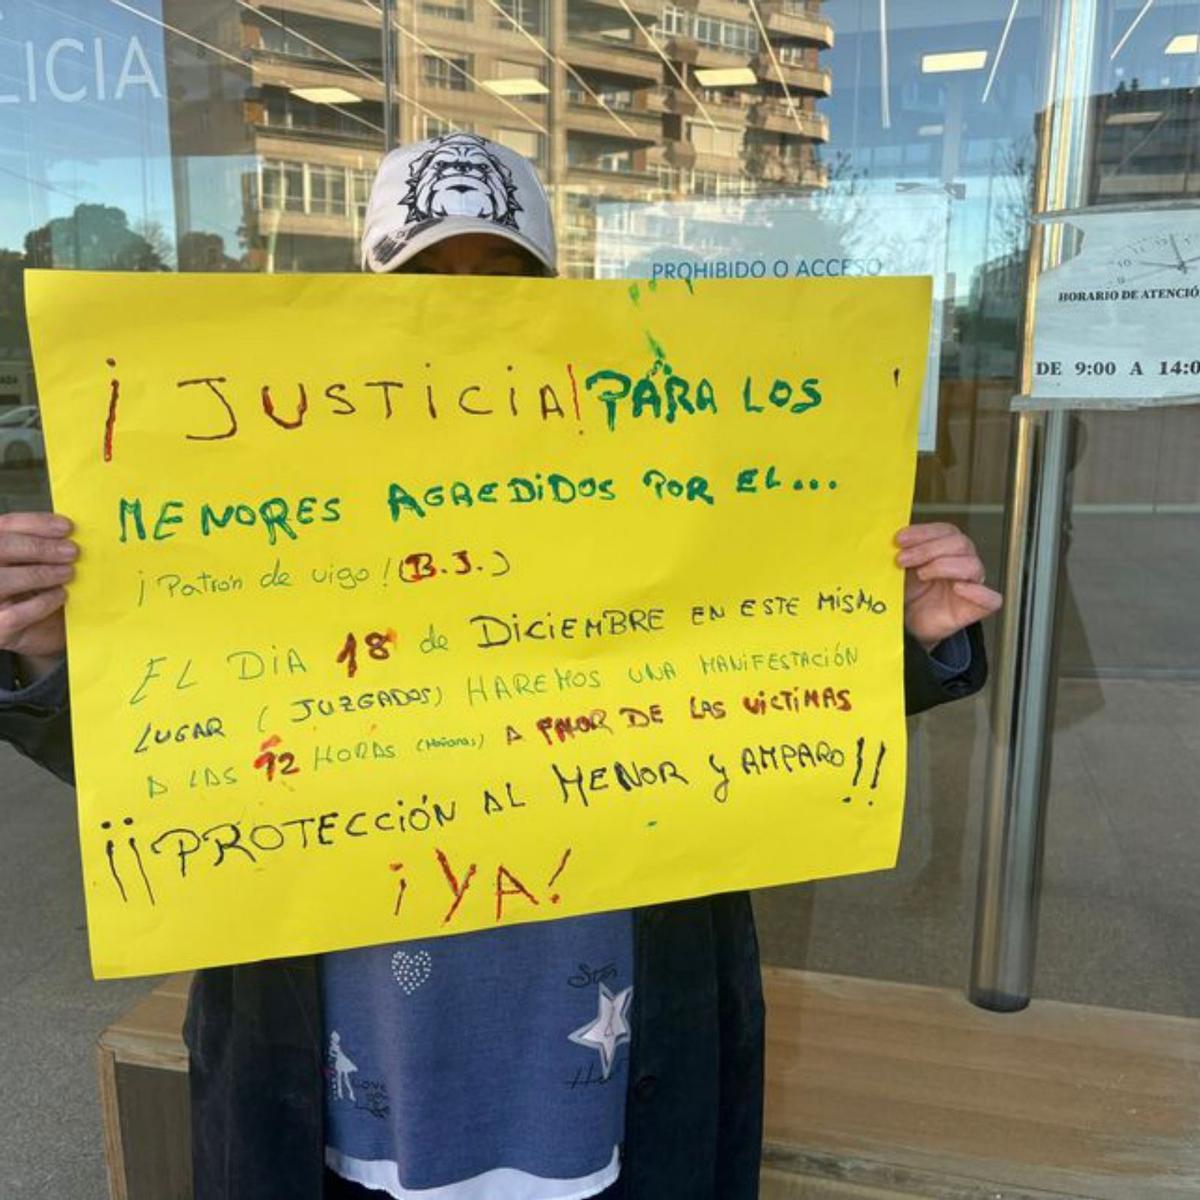 LICIA
PROHIBIDO O ACCESO
HORARIO DE ATENCIÓ
DE 9:00 A 14:0
¡JUSTICIA! PARA LOS
MENORES AGREDIDOS POR EL...
¡Patrón de vigo! (B.J.)
EL DIA 18 de DICIEMBRE EN ESTE MISMO
LUGAR (JUZGADOS) HAREMOS UNA MANIFESTACIÓN
A LAS 12 HORAS (Mañana) A FAVOR DE LAS VICTIMAS
¡¡PROTECCIÓN AL MENOR y AMPARO!!
¡YA!
Star
LOVE